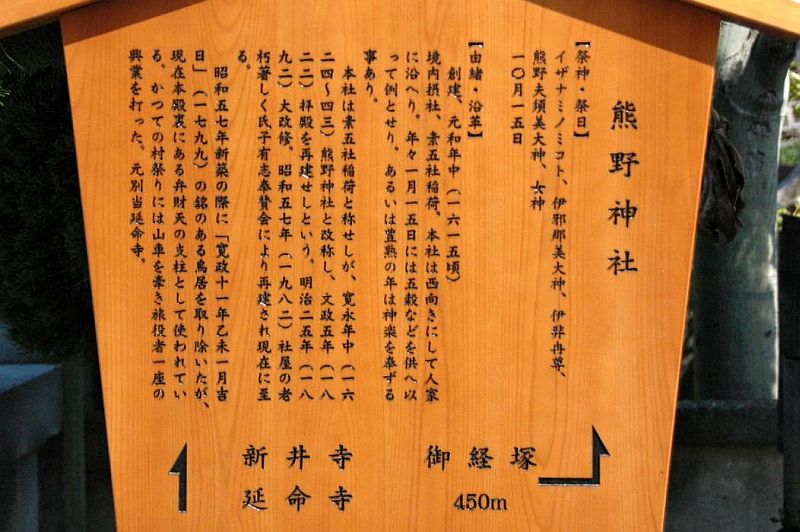 熊野神社
【祭神・祭日】
イザナミノミコト、伊邪那美大神、伊弉冉尊、
熊野夫須美大神、女神
一〇月一五日
【由緒・沿革】
創建、元和年中（一六一五頃）
境内摂社、素五社稲荷。本社は西向きにして人家
に沿へり。年々一月一五日には五穀などを供へ以
って例とせり。あるいは豊熟の年は神楽を奉ずる
事あり。
本社は素五社稲荷と称せしが、寛永年中（一六
二四～四三）熊野神社と改称し、文政五年（一八
二二）拝殿を再建せしという。明治二五年（一八
九二）大改修。昭和五七年（一九八二）社屋の老
朽著しく氏子有志奉賛会により再建され現在に至
る。
昭和五七年新築の際に「寛政十一年乙未一月吉
日」（一七九九）の銘のある鳥居を取り除いたが、
現在本殿裏にある弁財天の支柱として使われてい
る。かつての村祭りには山車を牽き旅役者一座の
興業を打った。元別当延命寺。
御経塚
450m
新井寺
延命寺